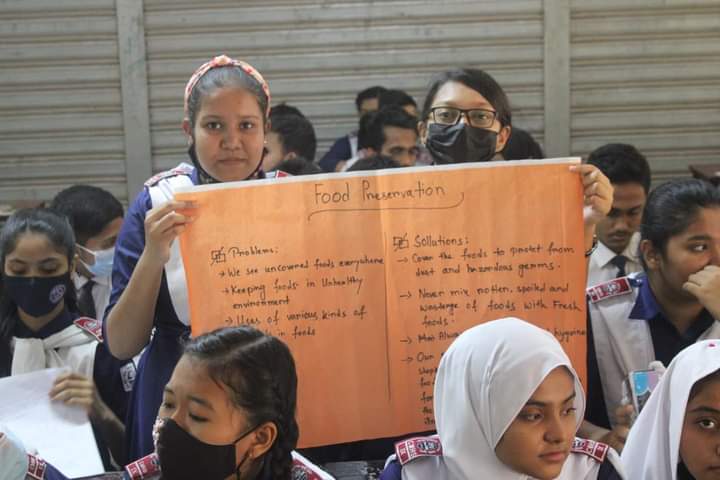 Food Preservation
Problems:
→ We see uncovered foods everywhere
→ Keeping foods in Unhealthy
environment
→ Uses of various kinds of
in foods
Sollutions:
→ Cover the foods to protect from
dust and hazardous germs.
→ Never mix rotten, spoiled and
wasterge of foods with Fresh
foods.
→ Alwa hygiene
→ Our